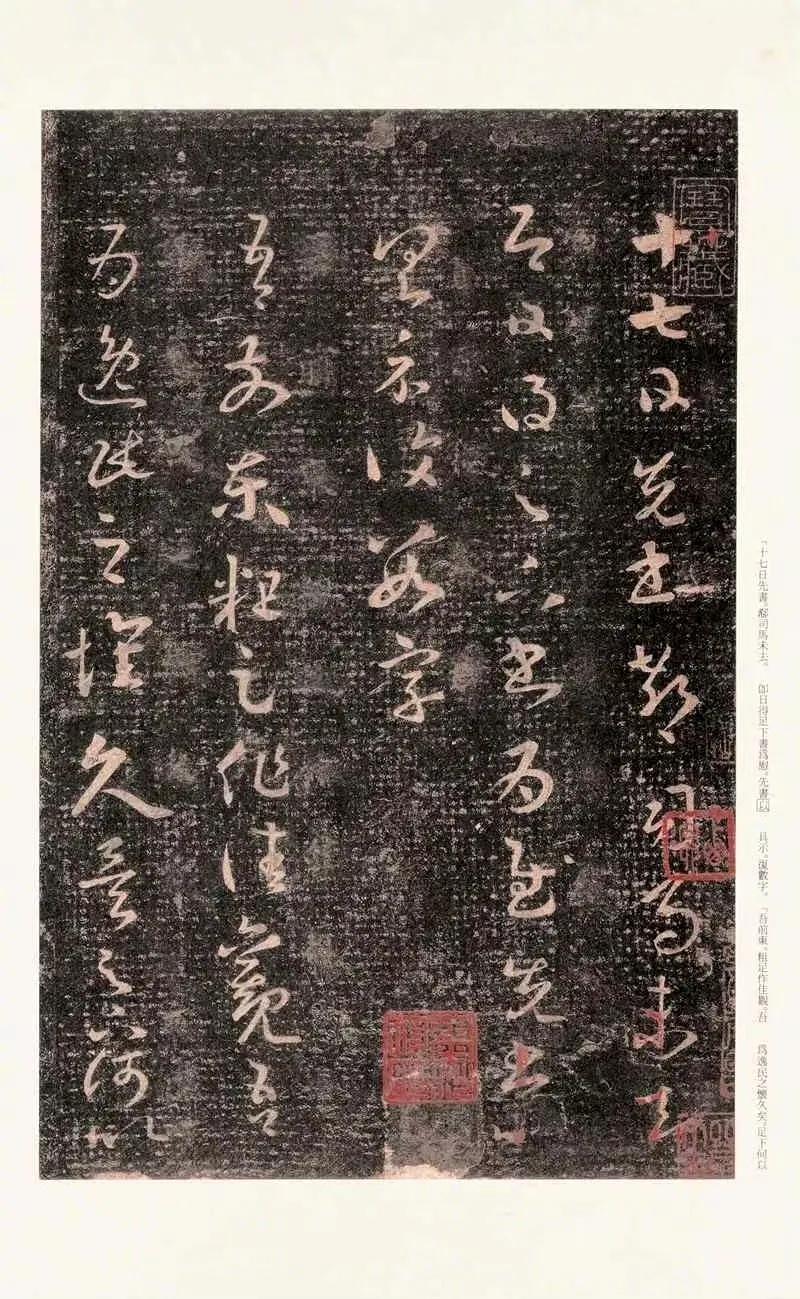 十七日先書郗司馬未去
即日得足下書為慰先書以
具示復數字
吾前東粗足作佳觀吾
為逸民之懷久矣足下何以
「十七日先書。郗司馬未去。 即日得足下書爲慰。先書以 具示。復數字。 「吾前東。粗足作佳觀。吾 爲逸民之懷久矣。足下何以